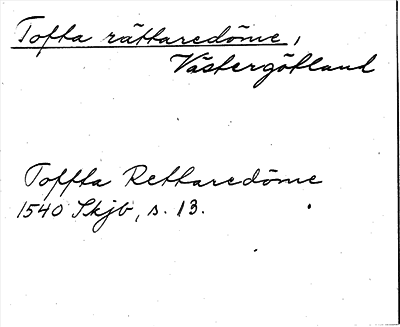 Tofta rättaredöme,
Västergötland
Toffta Rettaredöme
1540 Skjb, s. 13.